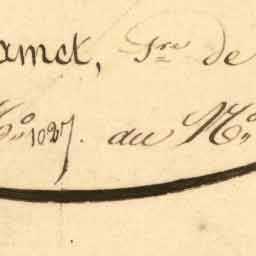 amet, Sre de
No 1027. au No